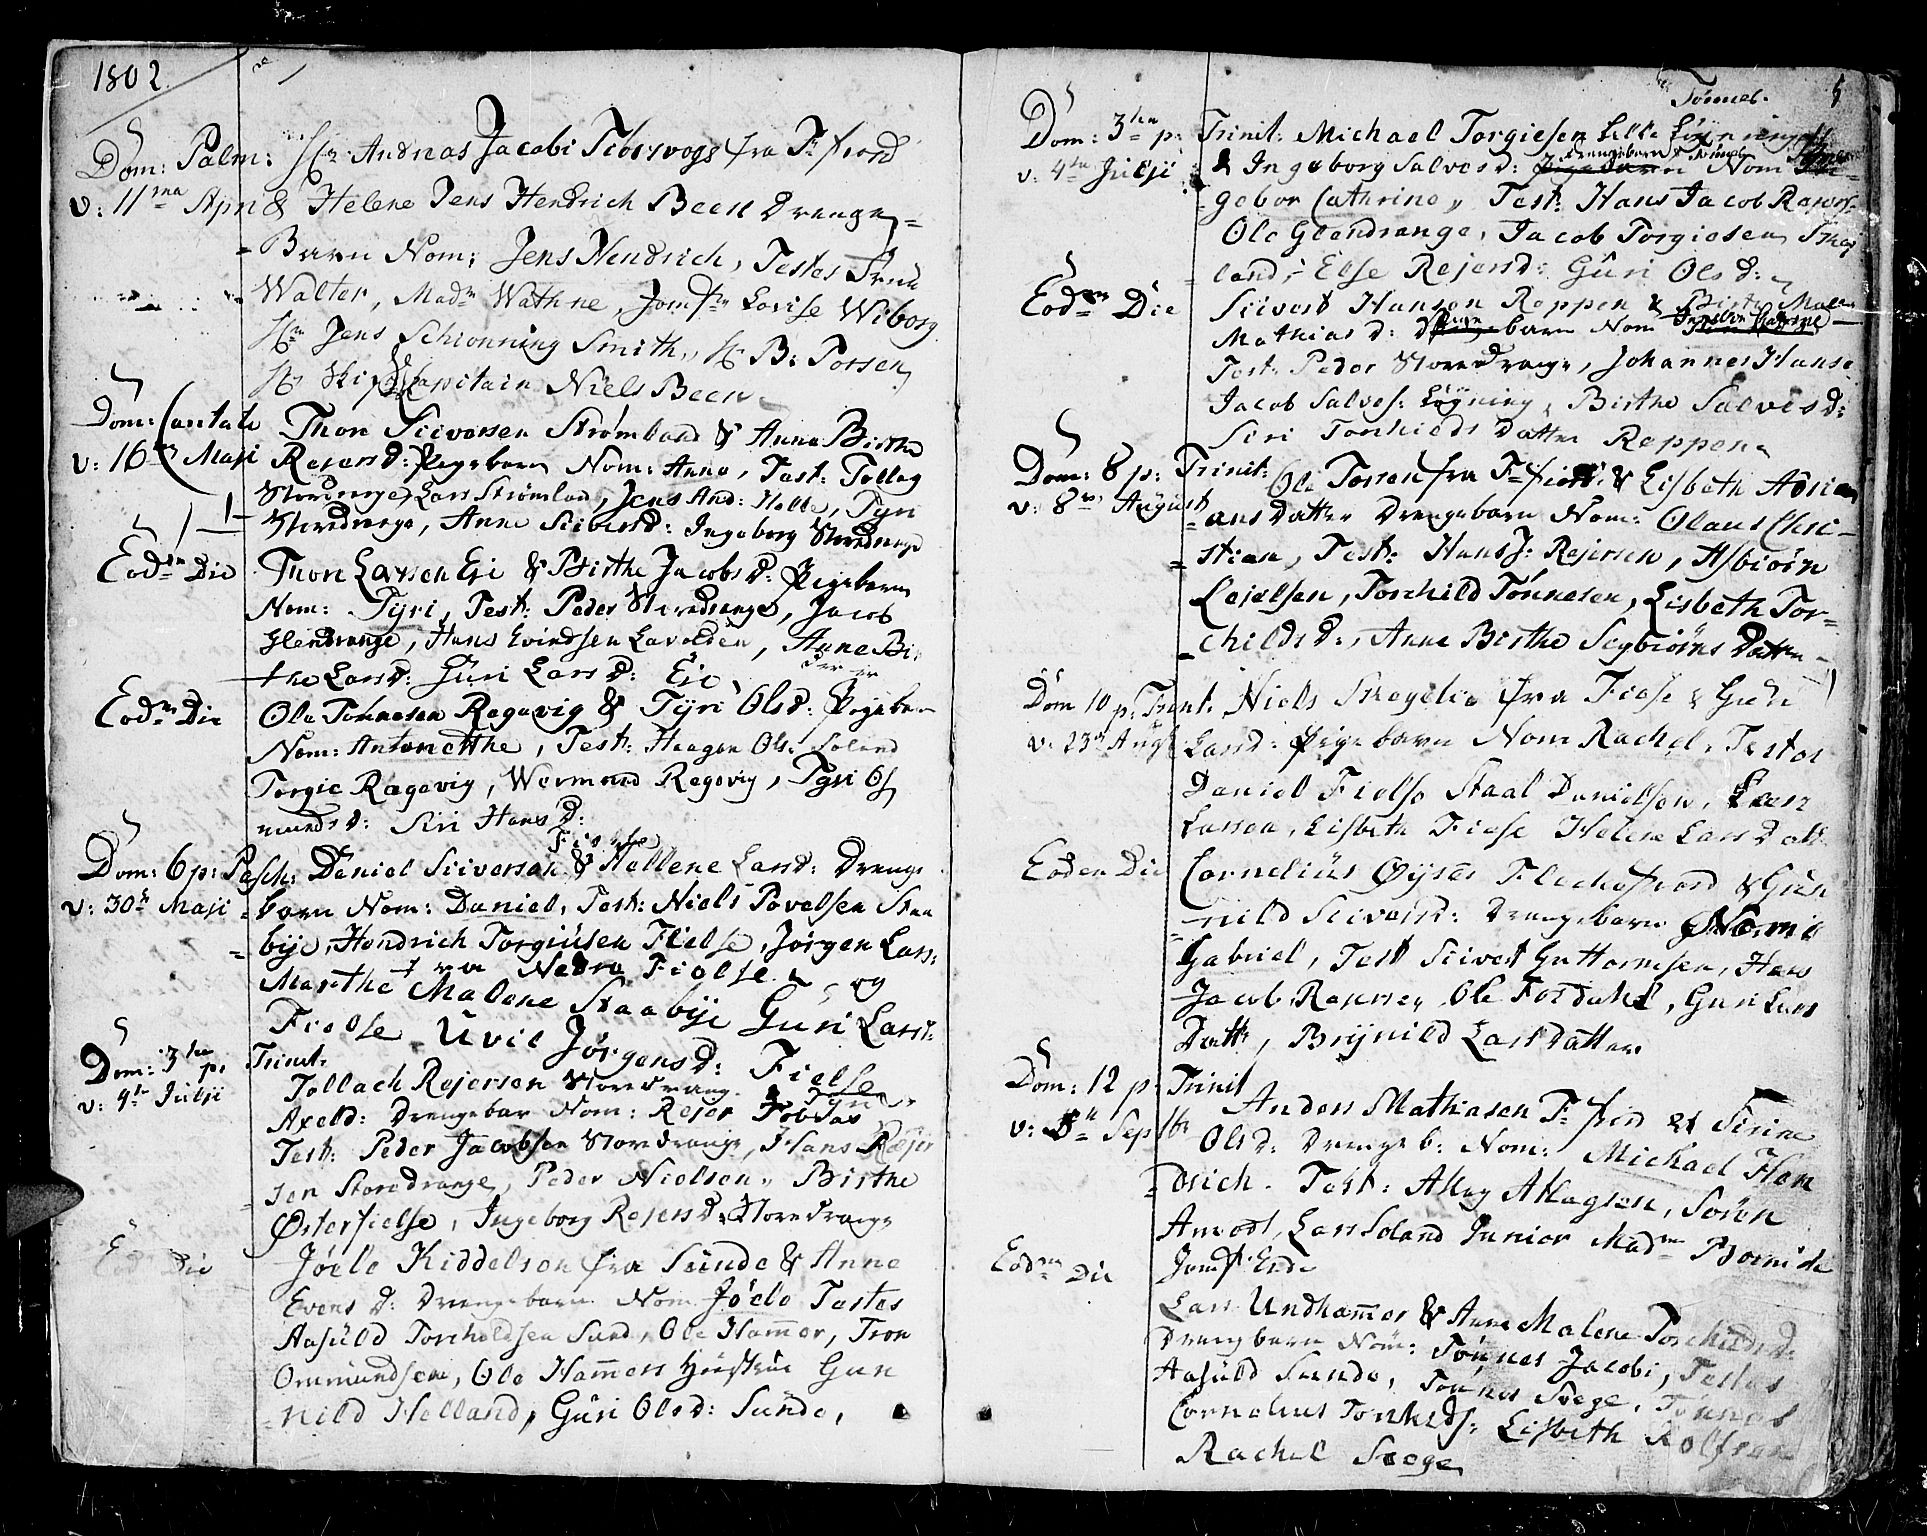 1802.
Dom: Palm: Hr Andreas Jacobi fra Fl: fiord
v: 11ma Apri & Helene Jens Hendrich Beer Drenge-
Barn Nom: Jens Hendrich, Testes
Walter, Madm Wathne, Jomfr Lovise Wiborg
Hr Jens Schionning Smith, Hr B: Possen,
Hr Skips Capitain Niels Beer
Dom: Cantate Thor Siversen Strømland & Anna Birthe
v: 16 Maji Rejersd: Pigebarn Nom: Anna, Test: Tollag
Stordrange, Lars Strømland, Jens And: Helle, Tyri
Stordrange, Anne Siversd: Ingeborg Stordrange
Eodm Die Thor Larsen Eje & Birthe Jacobsd: Pigebarn
Nom: Tyri, Test: Peder Stordrange, Jacob
Glendrange, Hans Evindsen Lavolden, Anne Bir
the Larsd: Guri Larsd: Eie
Eodm Die Ole Tønnesen Regevig & Tyri Olsd: Pigebarn
Nom: Antonetthe, Test: Haagen Ols: Soland
Torgie Ragevig, Wermund Regevig, Tyri Os
mundsd: Siri Hansd:
Fielse
Dom: 6 p: Pasch: Daniel Siiversen & Hellene Larsd: Drenge
v: 30te Maji barn Nom: Daniel, Test: Niels Povelsen Staa
bye, Hendrich Torgiusen Fielse, Jørgen Lars:
Marthe fra Nedre Fielse, og
Malene Staabye Guri Larsd:
Fielse Uvil Jørgensd: Fielse
Dom: 3tia p: Trinit:
v: 4te Julji Tollach Rejersen Storedrang &
Axeld: Drengebar Nom: Rejer Tobias
Test: Peder Jacobsen Storedrange, Hans Rejer
sen Storedrange, Peder Nielsen, Birthe
Østerfielse, Ingeborg Rejersd: Storedrange
Eodm Die Jøele Kiddelsen fra Sunde & Anne
Evens D: Drengebarn Nom Jøele Testes
Aasuld Torchildsen Sund, Ole Hammer, Tron
Ommundsen, Ole Hammers Hustrue Gun
nild Helland, Guri Olsd: Sunde,
Tønnes. 5
Dom: 3tia p: Trinit: Michael Torgiesen Lille Løgning
v: 4te Julji & Ingeborg Salvesd: Drengebarn Nom
gebor Cathrine, Test: Hans Jacob Rejers:
Ole Glendrange, Jacob Torgiesen
land, Else Rejersd: Guri Olsd:
Eodm Die Siivert Hansen Reppen & Birte Malene
Mathiasd: barn Nom
Test: Peder Storedrange, Johannes Hanse
Jacob Salves: Løgning, Birthe Salvesd:
Siri Torkields Datter Reppen
Dom: 8 p: Trinit: Ole Tossen fra Fl: fiord & Lisbeth Adrian
v: 8de August ans Datter Drengebarn Nom: Olaus Chri-
stian, Test: Hans J: Rejersen, Asbiørn
Lejelsen, Torchild Tønnesen, Lisbeth Tor-
childsd:, Anne Birthe Segbiørns Datter
Dom 10 p: Trint. Niels Skregelie fra Fiese &
v: 23de Augt Larsd: Pigebarn Nom Rachel, Testes
Daniel Fielse Staal Danielsen, Lars
Larsen, Lisbeth Fiese Helene Lars Datt
Eodem Die Cornelius Øysæs Fleckefiord & Gun
nild Siversd: Drengebarn Nomi
Gabriel, Test Sivert Guttormsen, Hans
Jacob Rejersen, Ole Fordahl, Guri Lars
Datt, Brynild Lars Datter
Dom: 12 p: Trinit
v: Septbr Anders Mathiasen Fl: fiord & Sirine
Olsd: Drengeb: Nom: Michael Hen
drich. Test: Atlag Atlagsen, Søren
Amodt, Lars Soland Junior Madme
Jomfr: Ende
Eodm Die Lars Undhammer & Anne Malene Torchildsd:
Drengbarn Nom: Tønnes Jacobi, Testes
Aasuld Sunde, Tønnes Svege, Tønnes
Cornelius Torkeds: Lisbeth Rolfsen
Rachel Svege